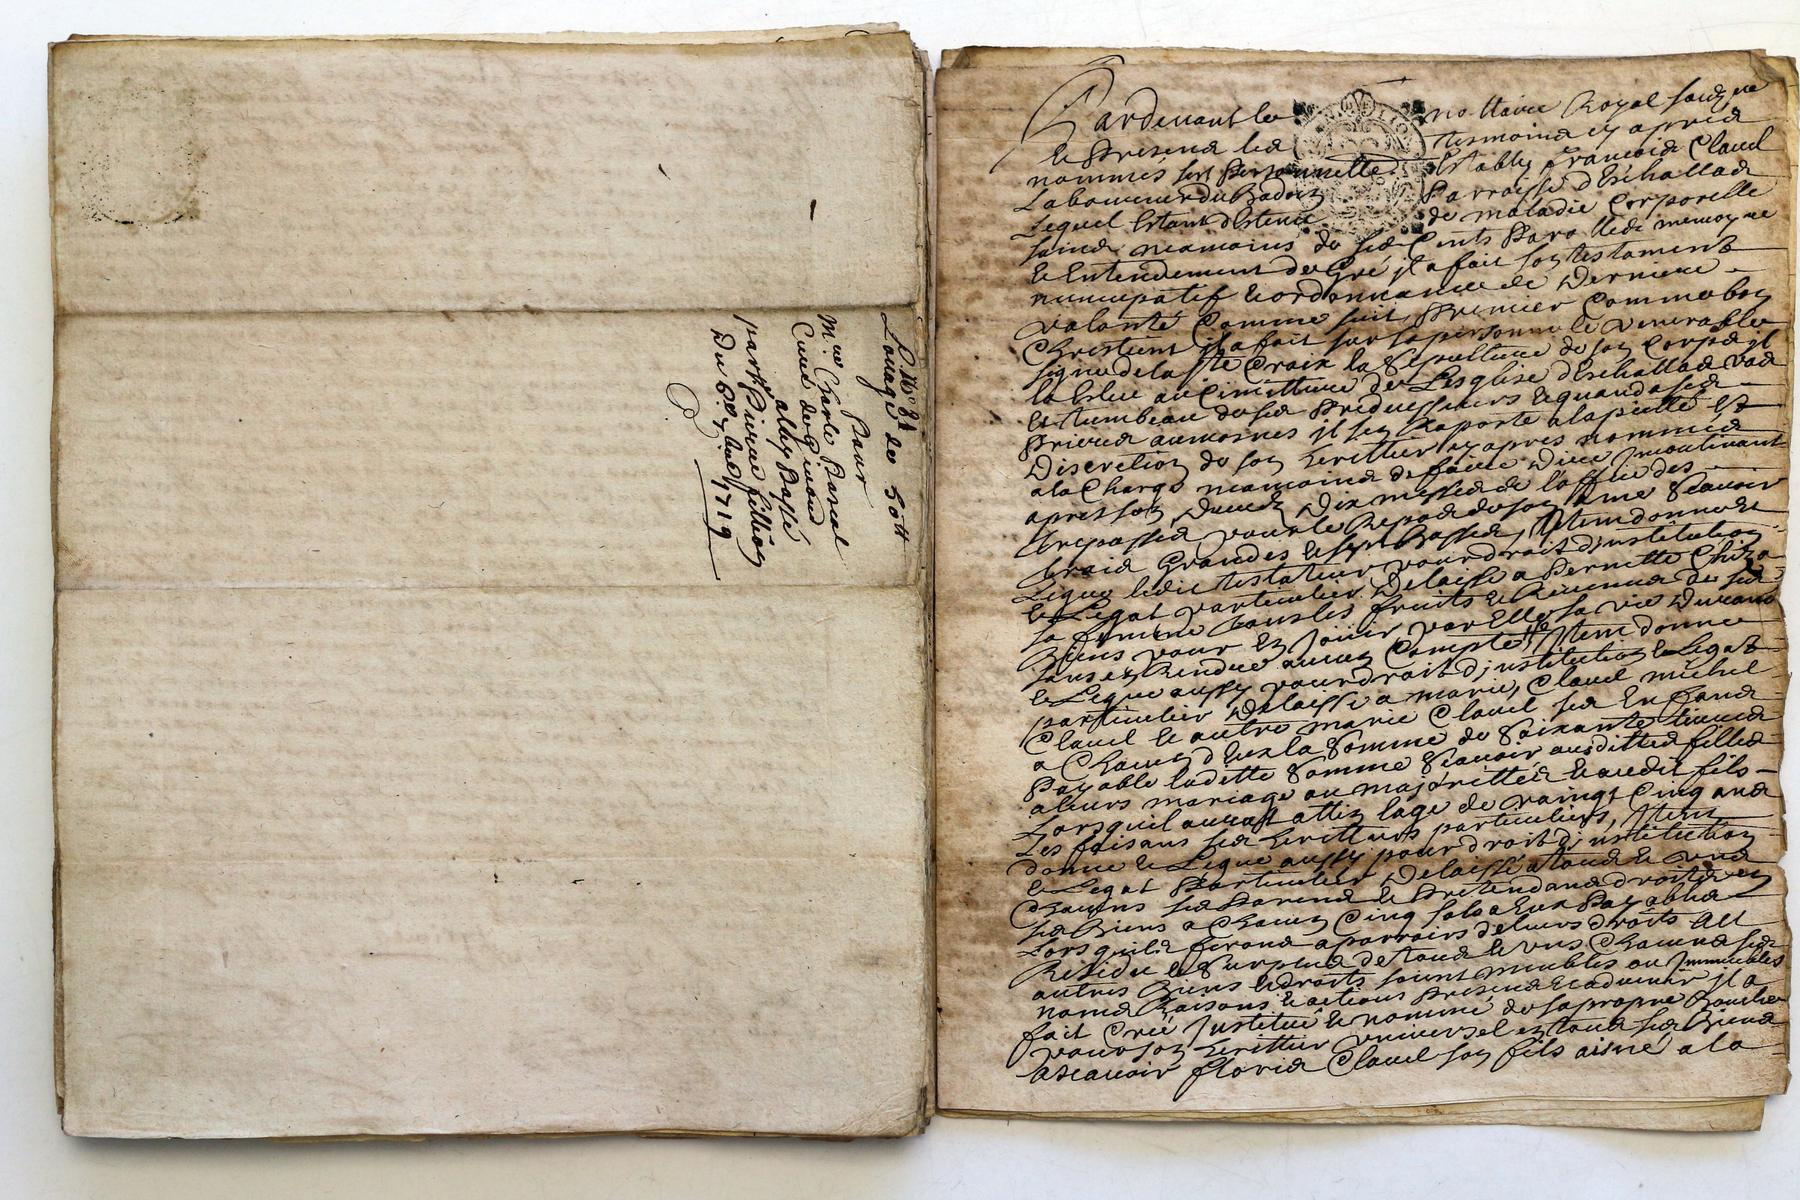 L. N° 81
Louage de 50tt
Pour
Mre Charle Pascal
Curé de
allez Passé
par Pierre fillion
Du 6e 1719
Pardevant le nottaire Royal souzne
& Presend les tesmoins cy aprés
nommés fut Personnelle Establly François Clauel
Laboureur du Parroisse d'Eschallas
Lequel Estant destenu de maladie Corporelle
Saind neamoins de ses Cents Parolle de memoyre
& Entendement de Gré jl a fait son testament
nuncupatif & ordonnance de Derniere
volonté Comme suit, Premier Comme bon
Chrestient jl a fait sur sa personne le venerable
signe de la ste Croix la Sepulture de son Corps jl
la Esleu au Cimittiere de L'esglise d'Eschallas
& tumbeau de ses Predecesseurs & quand a ses
Prieres aumosnes jl sen Raporte a la pieté &
Discretion de son heritier cy apres nommé
a la Charge neamoins de faire Dire jncontinant
apres son Decedz Dix messes de l'office des
trepassés pour le Repos de son Ame Scauoir
trois Grandes & sept Basses, Jtem donne &
Legue ledit testateur pour droit d'institution
& Legat particulier Delaisse a Pernette
sa femme tous les fruits & Reuenus de ses
Biens pour En Joüir par Elle sa vie Durand
sans En Rendre aucun Compte, Jtem donne
& Legue aussy pour droit d'institution & Legat
particulier Delaisse a marie, Clauel michel
Clauel & autre marie Clauel ses Enfans
a Chacun d'Eux la Somme de Soixante liures
Payable laditte Somme Scauoir ausdittes filles
a leurs mariage ou majorittés & audit fils
Lors quil aurat attin lage de vaingt Cinq ans
Les faisans ses heritiers particuliers, Jtem
donne & Legue aussy pour droit d'institution
& Legat Particulier Delaisse a tous & uns
Chacuns ses Parens & Pretendans droits en
ses Biens a Chacun Cinq sols a Eux Payables
Lors quils feront aparroirs de leurs droits Au
Residu & Surplus de tous & uns Chacuns ses
autres Biens & droits soient meubles ou Jmmeubles
noms Raisons & actions Presens & aduenir jl a
fait Creé Jnstitué & nommé de sa propre Bouche
pour son heritier vniuersel en tous ses Biens
a scauoir Clauel son fils aisné a la